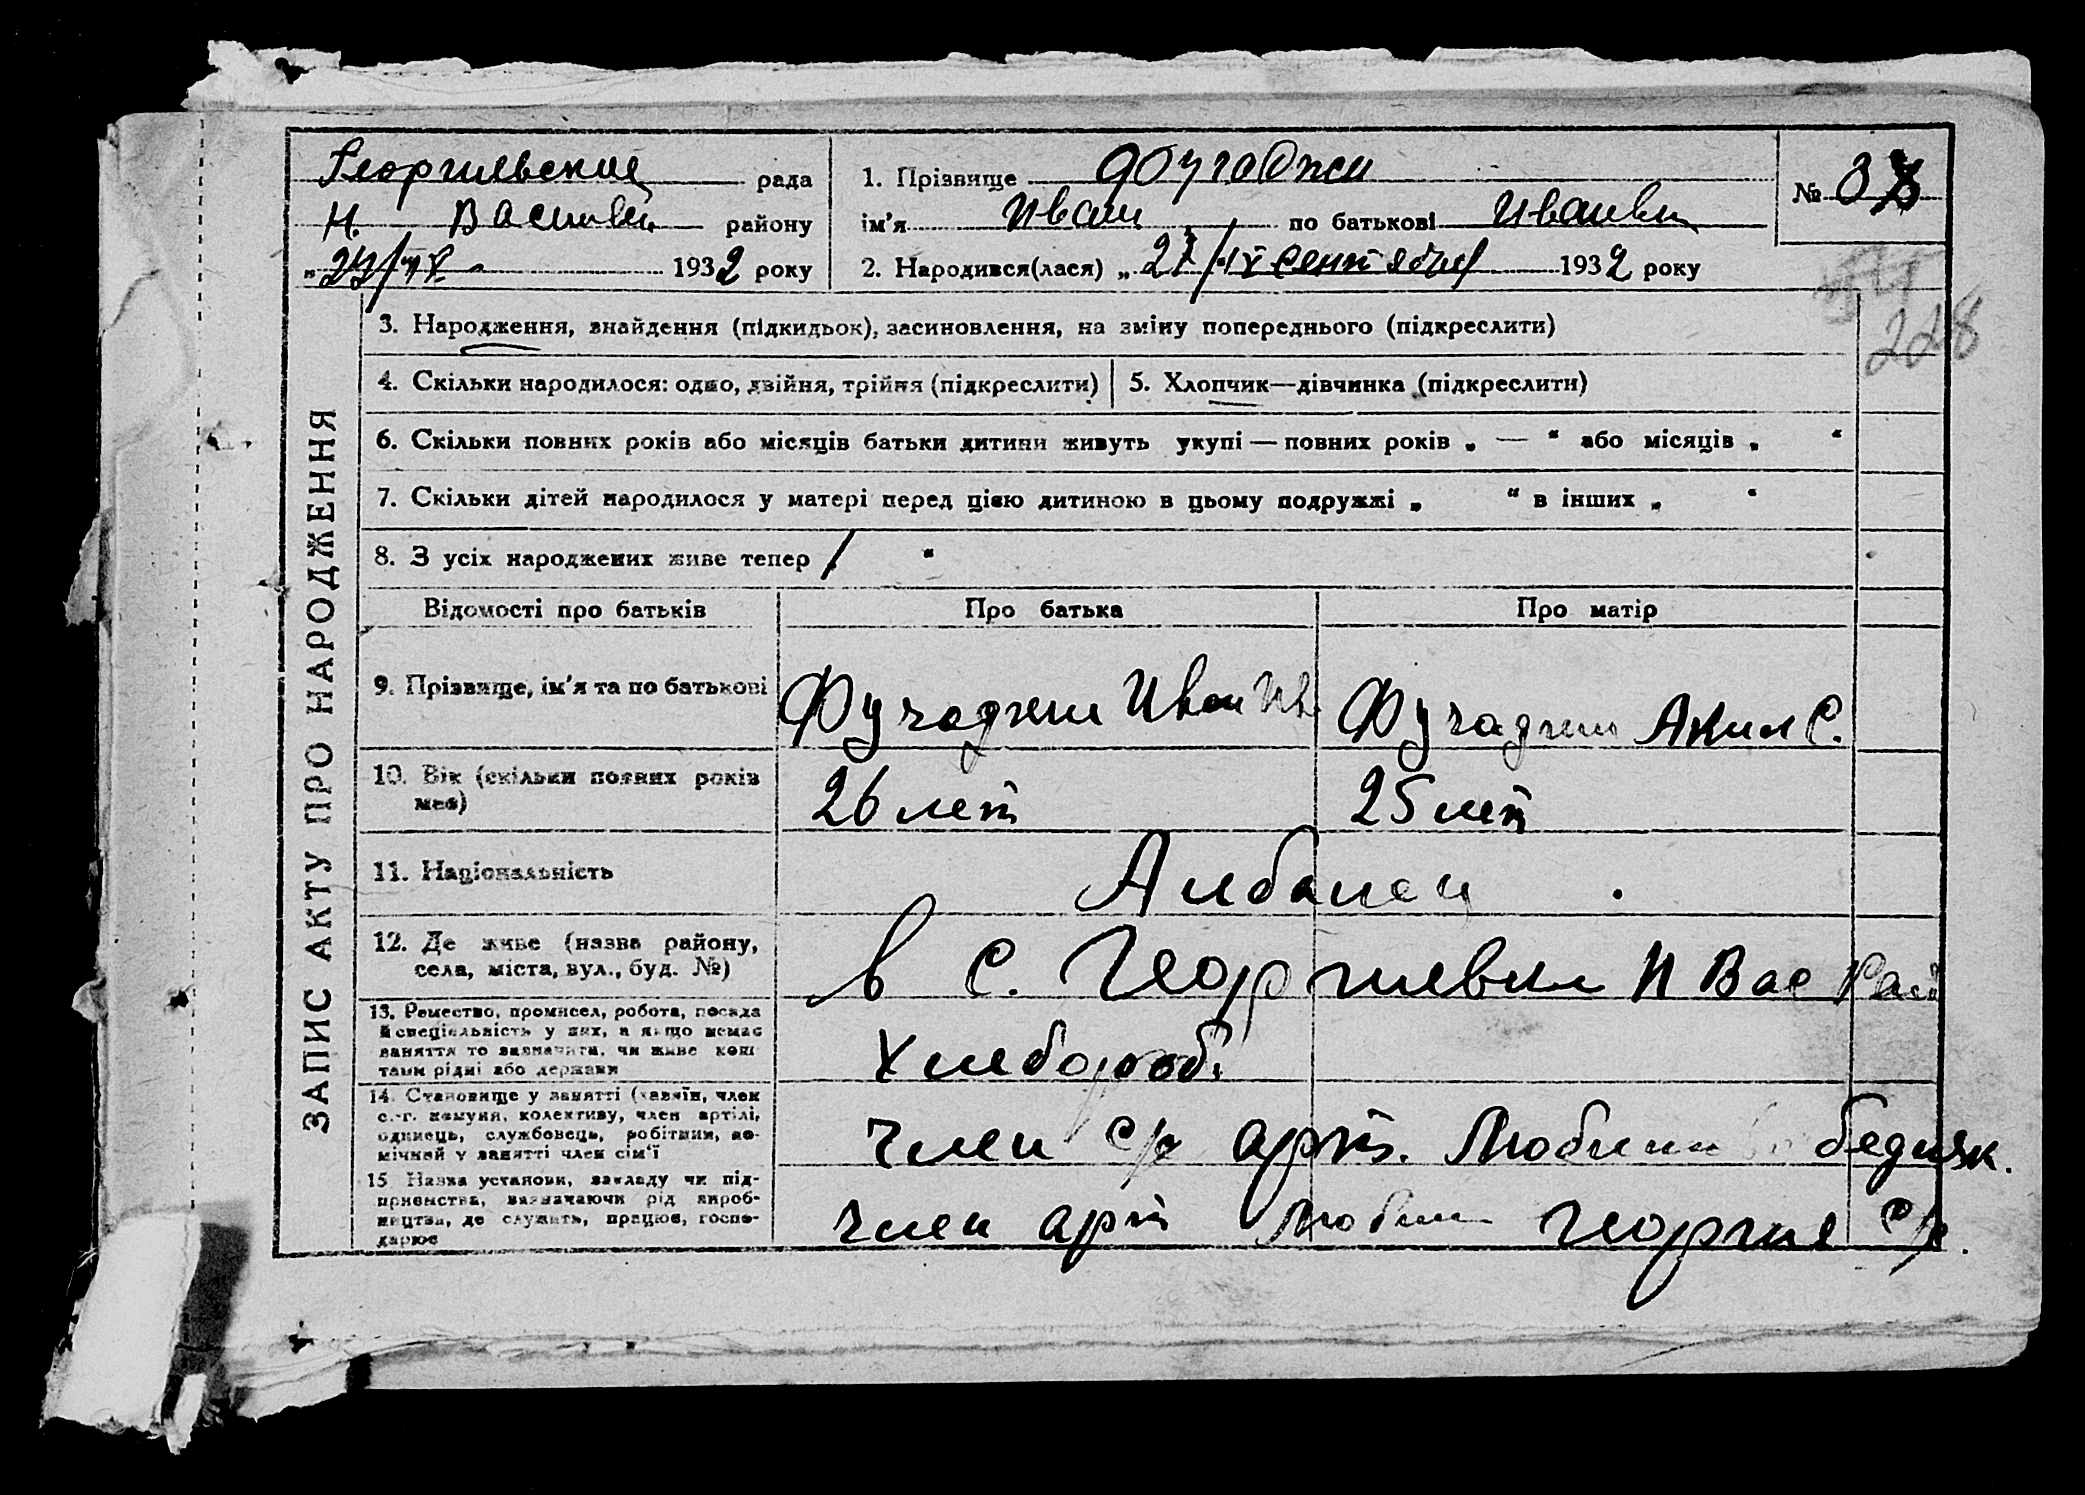 Георгиевский рада
Н. Васильев. району
1932 року
1. Прізвище Фучаджи
ім'я Иван по батькові Иванови
2. Народився(лася) „ 27/IX сентября 1932 року
№
228
ЗАПИС АКТУ ПРО НАРОДЖЕННЯ
3. Народження, знайдення (підкидьок), засиновлення, на зміну попереднього (підкреслити)
4. Скільки народилося: одно, двійня, трійня (підкреслити)
5. Хлопчик—дівчинка (підкреслити)
6. Скільки повних років або місяців батьки дитини живуть укупі — повних років „ — “ або місяців „ “
7. Скільки дітей народилося у матері перед цією дитиною в цьому подружжі „ “ в інших „ “
8. З усіх народжених живе тепер “
Відомості про батьків
Про батька
Про матір
9. Прізвище, ім'я та по батькові
Фучаджи Иван Ив.
Фучаджи Акил С.
10. Вік (скільки повних років
має)
26 лет
25 лет
11. Національність
Албанец
12. Де живе (назва району,
села, міста, вул., буд. №)
в с. Георгиевки Н Вас Рай
13. Ремество, промисел, робота, посада
й спеціальність у них, а якщо немає
заняття то зазначити, чи живе кош
тами рідні або держави
Хлебороб.
14. Становище у занятті (хазяїн, член
с.-г. комуни, колективу, член артілі,
одинець, службовець, робітник, по-
мічний у занятті член сім'ї
член с/х арт. Любим бедняк.
15. Назва установи, закладу чи під-
приємства, визначаючи рід вироб-
ництва, де служить, працює, госпо-
дарює
член арт Любим Георгие с/с.